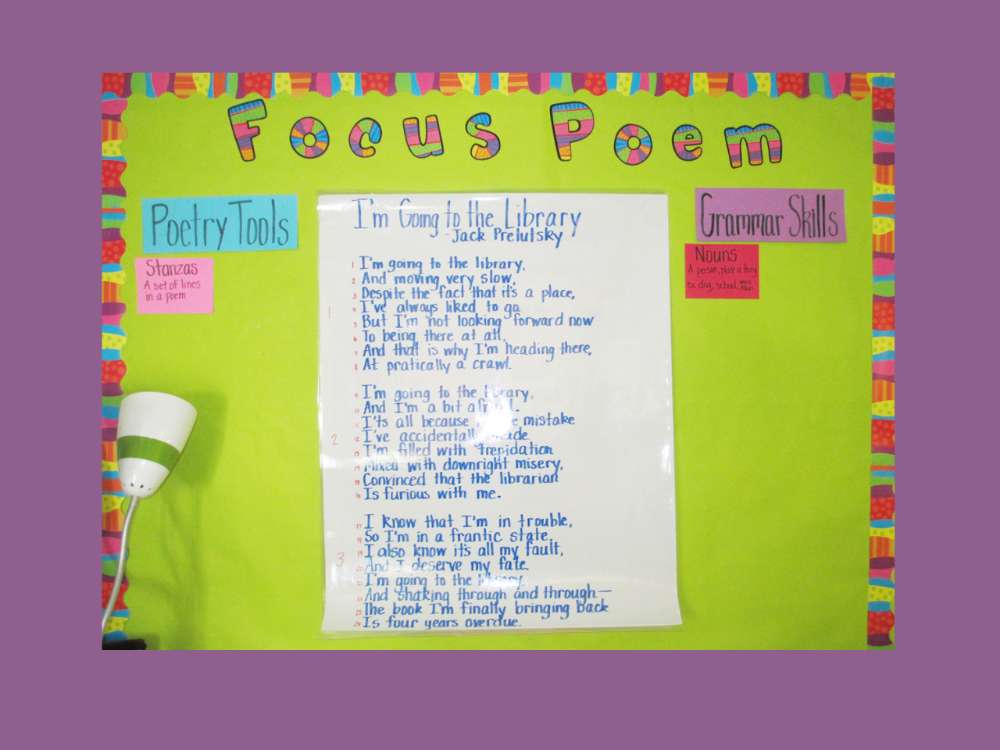 Focus Poem
Poetry Tools
Stanzas
A set of lines
in a poem
I'm Going to the Library
-Jack Prelutsky
1
I'm going to the library,
And moving very slow,
Despite the fact that it's a place,
I've always liked to go
But I'm not looking forward now
To being there at all,
And that is why I'm heading there,
At pratically a crawl.
2
I'm going to the library,
And I'm a bit
I'ts all because mistake
I've accidentally
I'm filled with trepidation
Mixed with downright misery,
Convinced that the librarian
Is furious with me.
3
I know that I'm in trouble,
So I'm in a frantic state,
I also know it's all my fault,
And I deserve my fate.
I'm going to the library
And shaking through and through—
The book I'm finally bringing back
Is four years overdue.
Grammar Skills
Nouns
A person, place or thing
ex. dog, school,